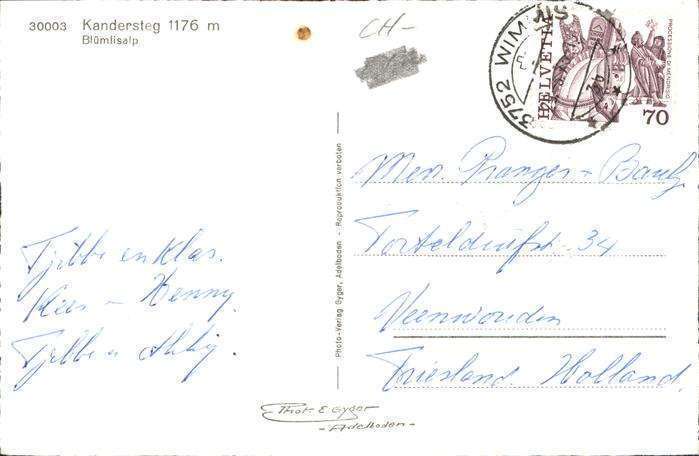 30003 Kandersteg 1176 m
Blümlisalp
CH-
3752 WIMMIS
HELVETIA
PROCESSIONI DI MENDRISIO
70
Photo-Verlag Gyger, Adelboden - Reproduktion verboten
Tjibbe en Klas.
Kees - Henny.
Tjibbe en
Mevr. Pranger - 
34
Veenwouden
Friesland. Holland.
Phot E Gyger
- Adelboden -